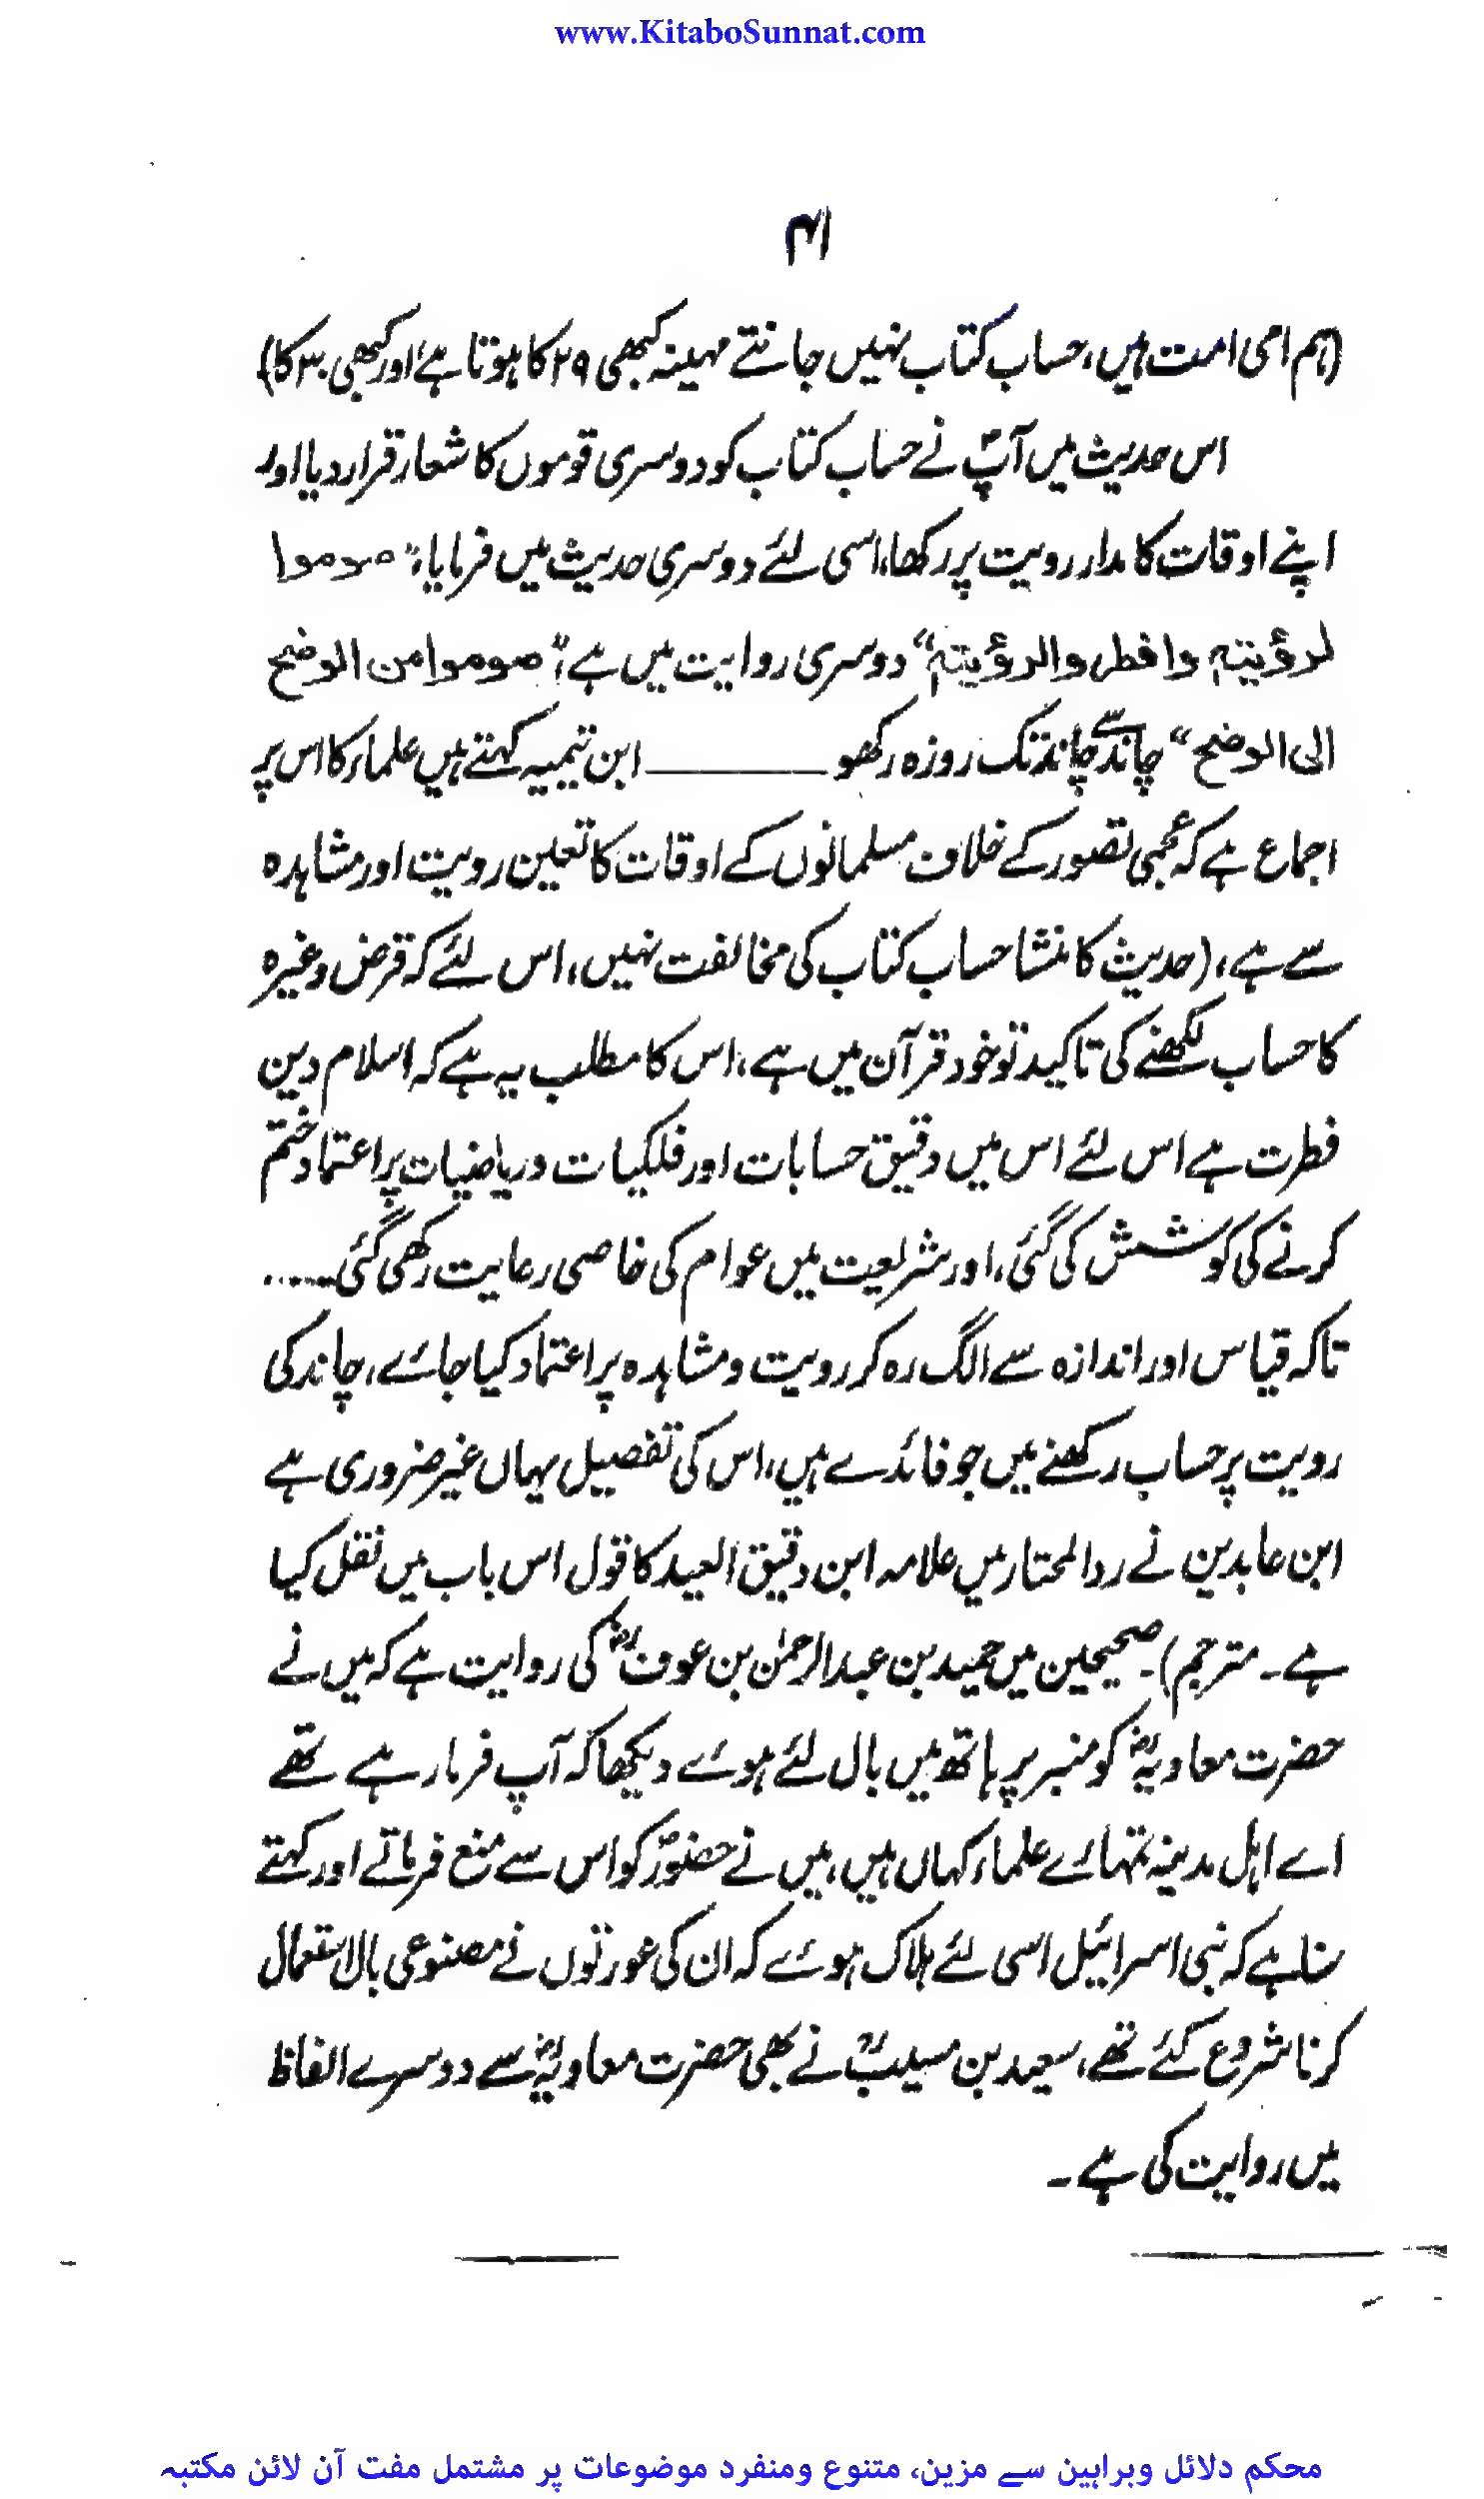 www.KitaboSunnat.com
۴۱
(ہم امی امت ہیں، حساب کتاب نہیں جانتے مہینہ کبھی ۲۹ کا ہوتا ہے اور کبھی ۳۰ کا)
اس حدیث میں آپؐ نے حساب کتاب کو دوسری قوموں کا شعار قرار دیا اور
اپنے اوقات کا مدار رویت پر رکھا، اسی لئے دوسری حدیث میں فرمایا: ”صوموا
لرؤیتہ وافطروا لرؤیتہ“ دوسری روایت میں ہے: ”صوموا من الوضح
الی الوضح“ چاند سے چاند تک روزہ رکھو ـــــــــ ابن تیمیہ کہتے ہیں علماء کا اس پر
اجماع ہے کہ عجمی تصور کے خلاف مسلمانوں کے اوقات کا تعین رویت اور مشاہدہ
سے ہے، (حدیث کا منشا حساب کتاب کی مخالفت نہیں، اس لئے کہ قرض وغیرہ
کا حساب لکھنے کی تاکید تو خود قرآن میں ہے، اس کا مطلب یہ ہے کہ اسلام دین
فطرت ہے اس لئے اس میں دقیق حسابات اور فلکیات و ریاضیات پر اعتماد ختم
کرنے کی کوشش کی گئی، اور شریعت میں عوام کی خاصی رعایت رکھی گئی.....
تاکہ قیاس اور اندازہ سے الگ رہ کر رویت و مشاہدہ پر اعتماد کیا جائے، چاند کی
رویت پر حساب رکھنے میں جو فائدے ہیں، اس کی تفصیل یہاں غیر ضروری ہے
ابن عابدین نے رد المحتار میں علامہ ابن دقیق العید کا قول اس باب میں نقل کیا
ہے۔ مترجم)۔ صحیحین میں حمید بن عبدالرحمٰن بن عوفؓ کی روایت ہے کہ میں نے
حضرت معاویہؓ کو منبر پر ہاتھ میں بال لئے ہوئے دیکھا کہ آپ فرما رہے تھے
اے اہل مدینہ تمہارے علماء کہاں ہیں، میں نے حضورؐ کو اس سے منع فرماتے اور کہتے
سنا ہے کہ بنی اسرائیل اسی لئے ہلاک ہوئے کہ ان کی عورتوں نے مصنوعی بال استعمال
کرنا شروع کئے تھے، سعید بن مسیبؒ نے بھی حضرت معاویہؓ سے دوسرے الفاظ
میں روایت کی ہے۔
محکم دلائل وبراہین سے مزین، متنوع ومنفرد موضوعات پر مشتمل مفت آن لائن مکتبہ